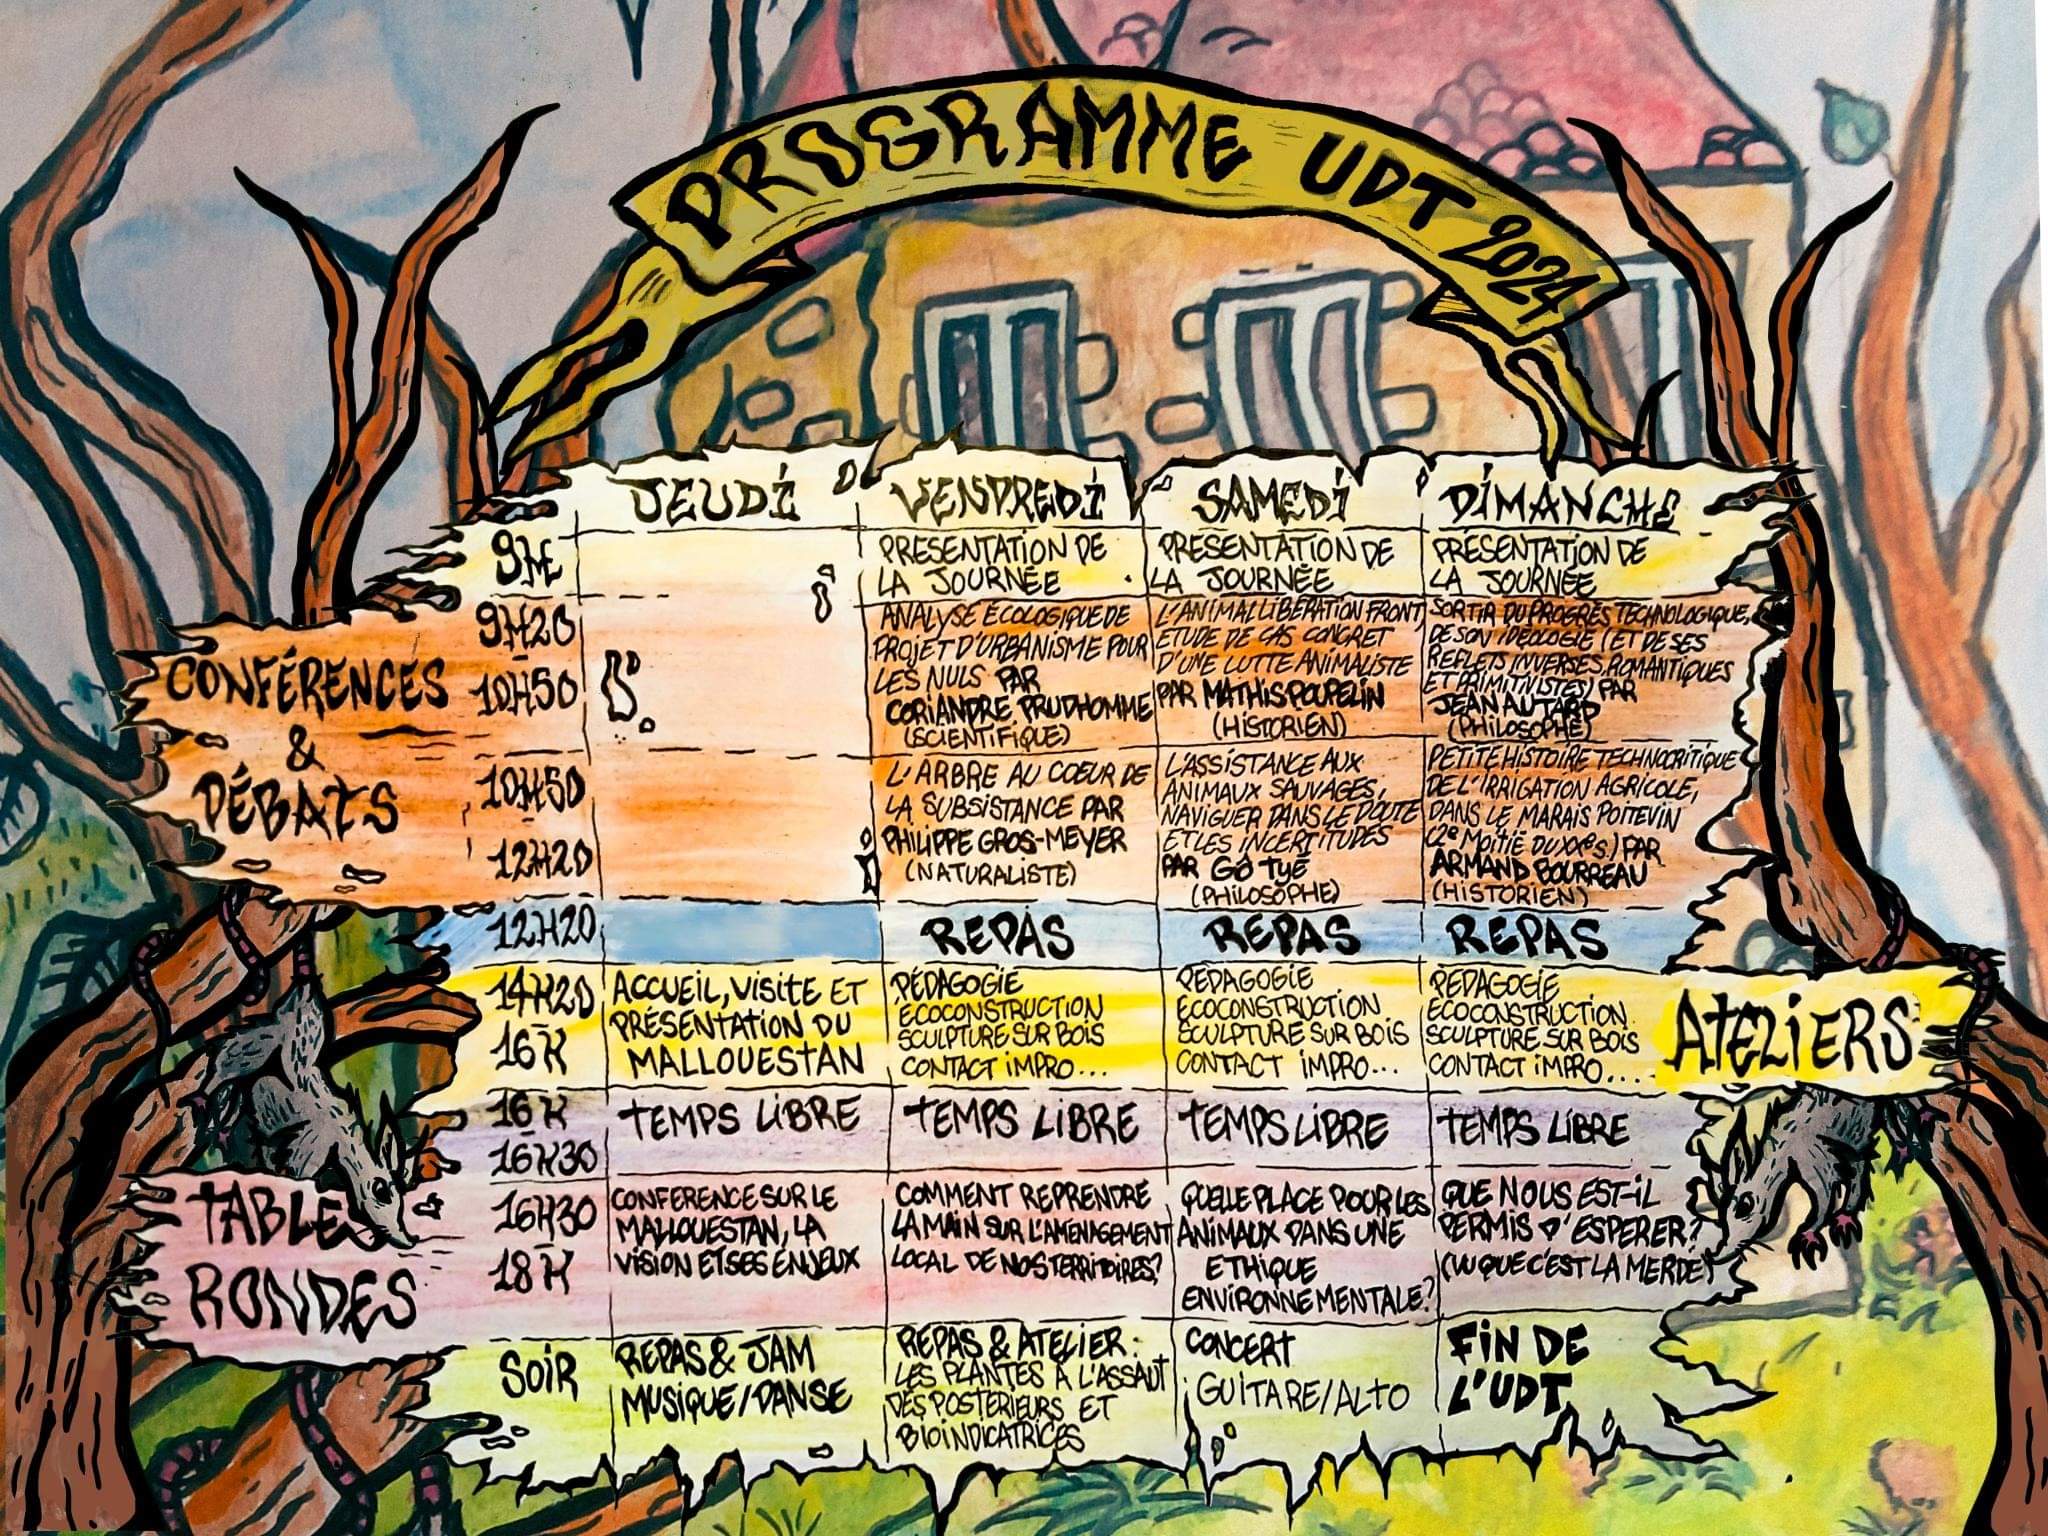 PROGRAMME UDT 2024
JEUDI
VENDREDI
SAMEDI
DIMANCHE
9H
PRÉSENTATION DE
LA JOURNÉE
PRÉSENTATION DE
LA JOURNÉE
PRÉSENTATION DE
LA JOURNÉE
CONFÉRENCES
&
DÉBATS
9H20
-
10H50
ANALYSE ÉCOLOGIQUE DE
PROJET D'URBANISME POUR
LES NULS PAR
CORIANDRE PRUDHOMME
(SCIENTIFIQUE)
L'ANIMAL LIBERATION FRONT,
ETUDE DE CAS CONCRET
D'UNE LUTTE ANIMALISTE
PAR MATHIS POUPELIN
(HISTORIEN)
SORTIR DU PROGRÈS TECHNOLOGIQUE,
DE SON IDÉOLOGIE (ET DE SES
REFLETS INVERSES, ROMANTIQUES
ET PRIMITIVISTES) PAR
JEAN AUTARD
(PHILOSOPHE)
10H50
-
12H20
L'ARBRE AU COEUR DE
LA SUBSISTANCE PAR
PHILIPPE GROS-MEYER
(NATURALISTE)
L'ASSISTANCE AUX
ANIMAUX SAUVAGES,
NAVIGUER DANS LE DOUTE
ET LES INCERTITUDES
PAR Gô Tyé
(PHILOSOPHE)
PETITE HISTOIRE TECHNOCRITIQUE
DE L'IRRIGATION AGRICOLE,
DANS LE MARAIS POITEVIN
(2e MOITIÉ DU XXes.) PAR
ARMAND BOURREAU
(HISTORIEN)
12H20
REPAS
REPAS
REPAS
14H20
-
16H
ACCUEIL, VISITE ET
PRÉSENTATION DU
MALLOUESTAN
PÉDAGOGIE
ECOCONSTRUCTION
SCULPTURE SUR BOIS
CONTACT IMPRO...
PEDAGOGIE
ECOCONSTRUCTION
SCULPTURE SUR BOIS
CONTACT IMPRO...
PEDAGOGIE
ECOCONSTRUCTION
SCULPTURE SUR BOIS
CONTACT IMPRO...
ATELIERS
16H
-
16H30
TEMPS LIBRE
TEMPS LIBRE
TEMPS LIBRE
TEMPS LIBRE
TABLE
RONDES
16H30
-
18H
CONFERENCE SUR LE
MALLOUESTAN, LA
VISION ET SES ENJEUX
COMMENT REPRENDRE
LA MAIN SUR L'AMENAGEMENT
LOCAL DE NOS TERRITOIRES?
QUELLE PLACE POUR LES
ANIMAUX DANS UNE
ETHIQUE
ENVIRONNEMENTALE?
QUE NOUS EST-IL
PERMIS D'ESPERER?
(VU QUE C'EST LA MERDE)
SOIR
REPAS & JAM
MUSIQUE/DANSE
REPAS & ATELIER:
LES PLANTES À L'ASSAUT
DES POSTERIEURS ET
BIOINDICATRICES
CONCERT
GUITARE/ALTO
FIN DE
L'UDT